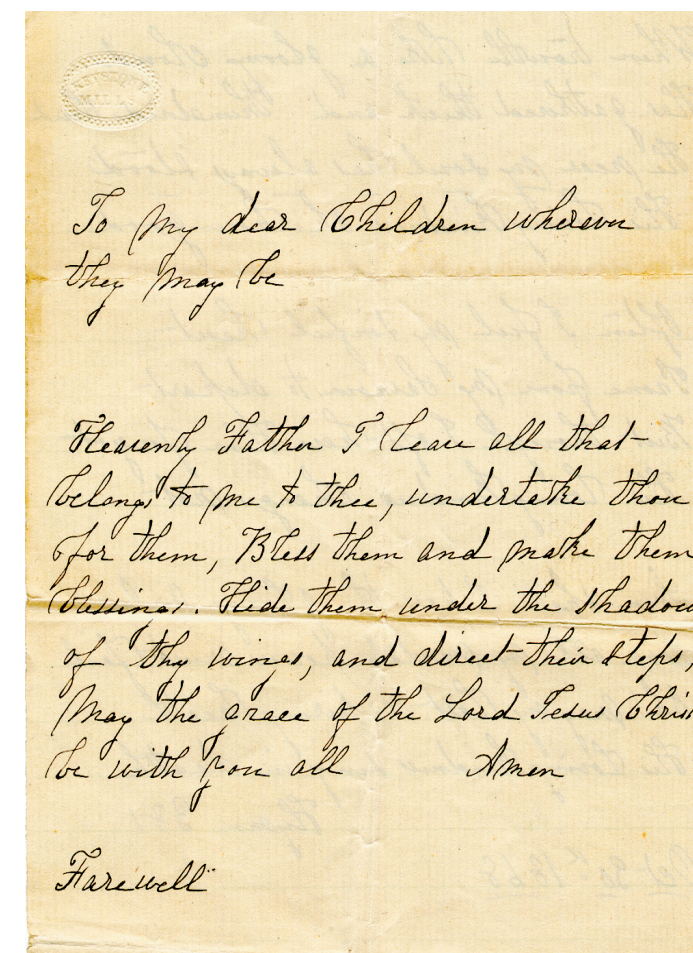 To my dear Children wherever
they may be
Heavenly Father I leave all that
belongs to me to thee, undertake thou
for them, Bless them and make them
blessings. Hide them under the shadow
of thy wings, and direct their steps,
May the grace of the Lord Jesus Chris
be with you all Amen
Farewell